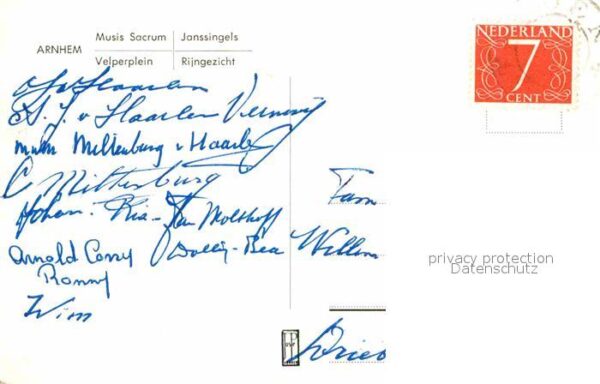 ARNHEM
Musis Sacrum | Janssingels
Velperplein | Rijngezicht
NEDERLAND
7
CENT
v Haarlem
A. J. v Haarlem Vermeij
Miltenburg v Haarlem
C Miltenburg
Johan - Ria - Jan Molthoff
Arnold Corry Dolly - Bea Willem
Ronny
Wim
Fam
Drie
privacy protection
Datenschutz